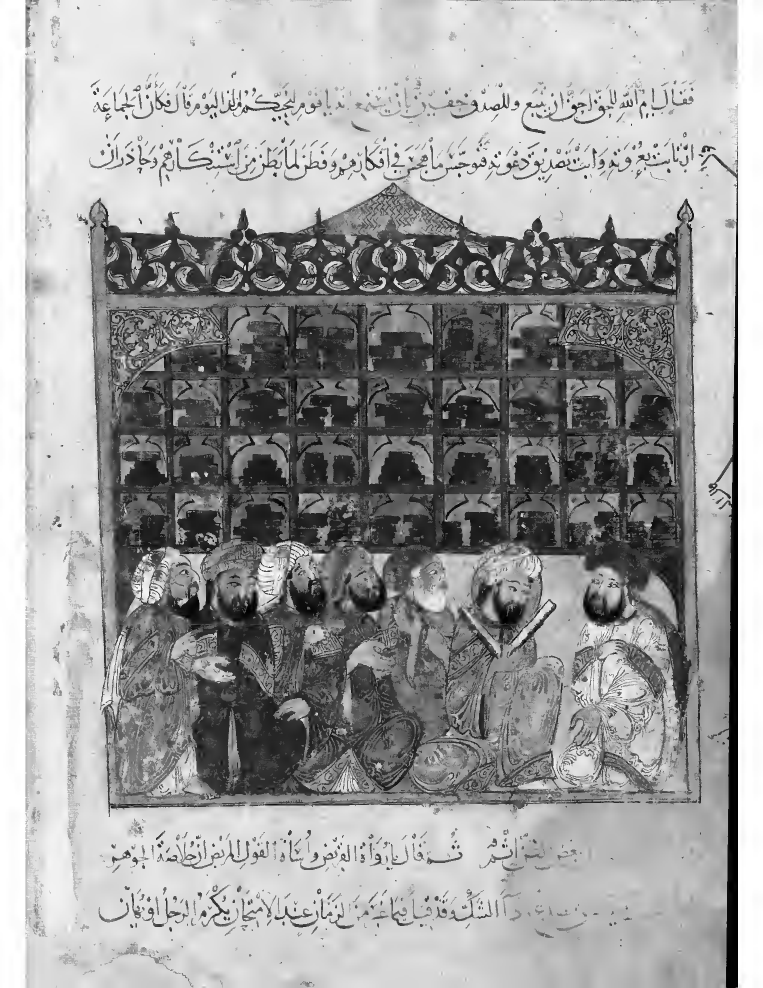 فقال ايم الله للحق احق ان يتبع وللصدق حقيق بان يستمع انه يا قوم لنجيكم مذ اليوم قال فكأن الجماعة
ارتابت بعزوته وابت تصديق دعوته فتوجس ما هجس في افكارهم وفطن لما بطن من استنكارهم وحاذر ان
بعض الظن اثم ثم قال يا رواة القريض واساة القول المريض ان خلاصة الجوهر
ردآ الشك وقد قيل فيما غبر من الزمان عند الامتحان يكرم الرجل او يهان